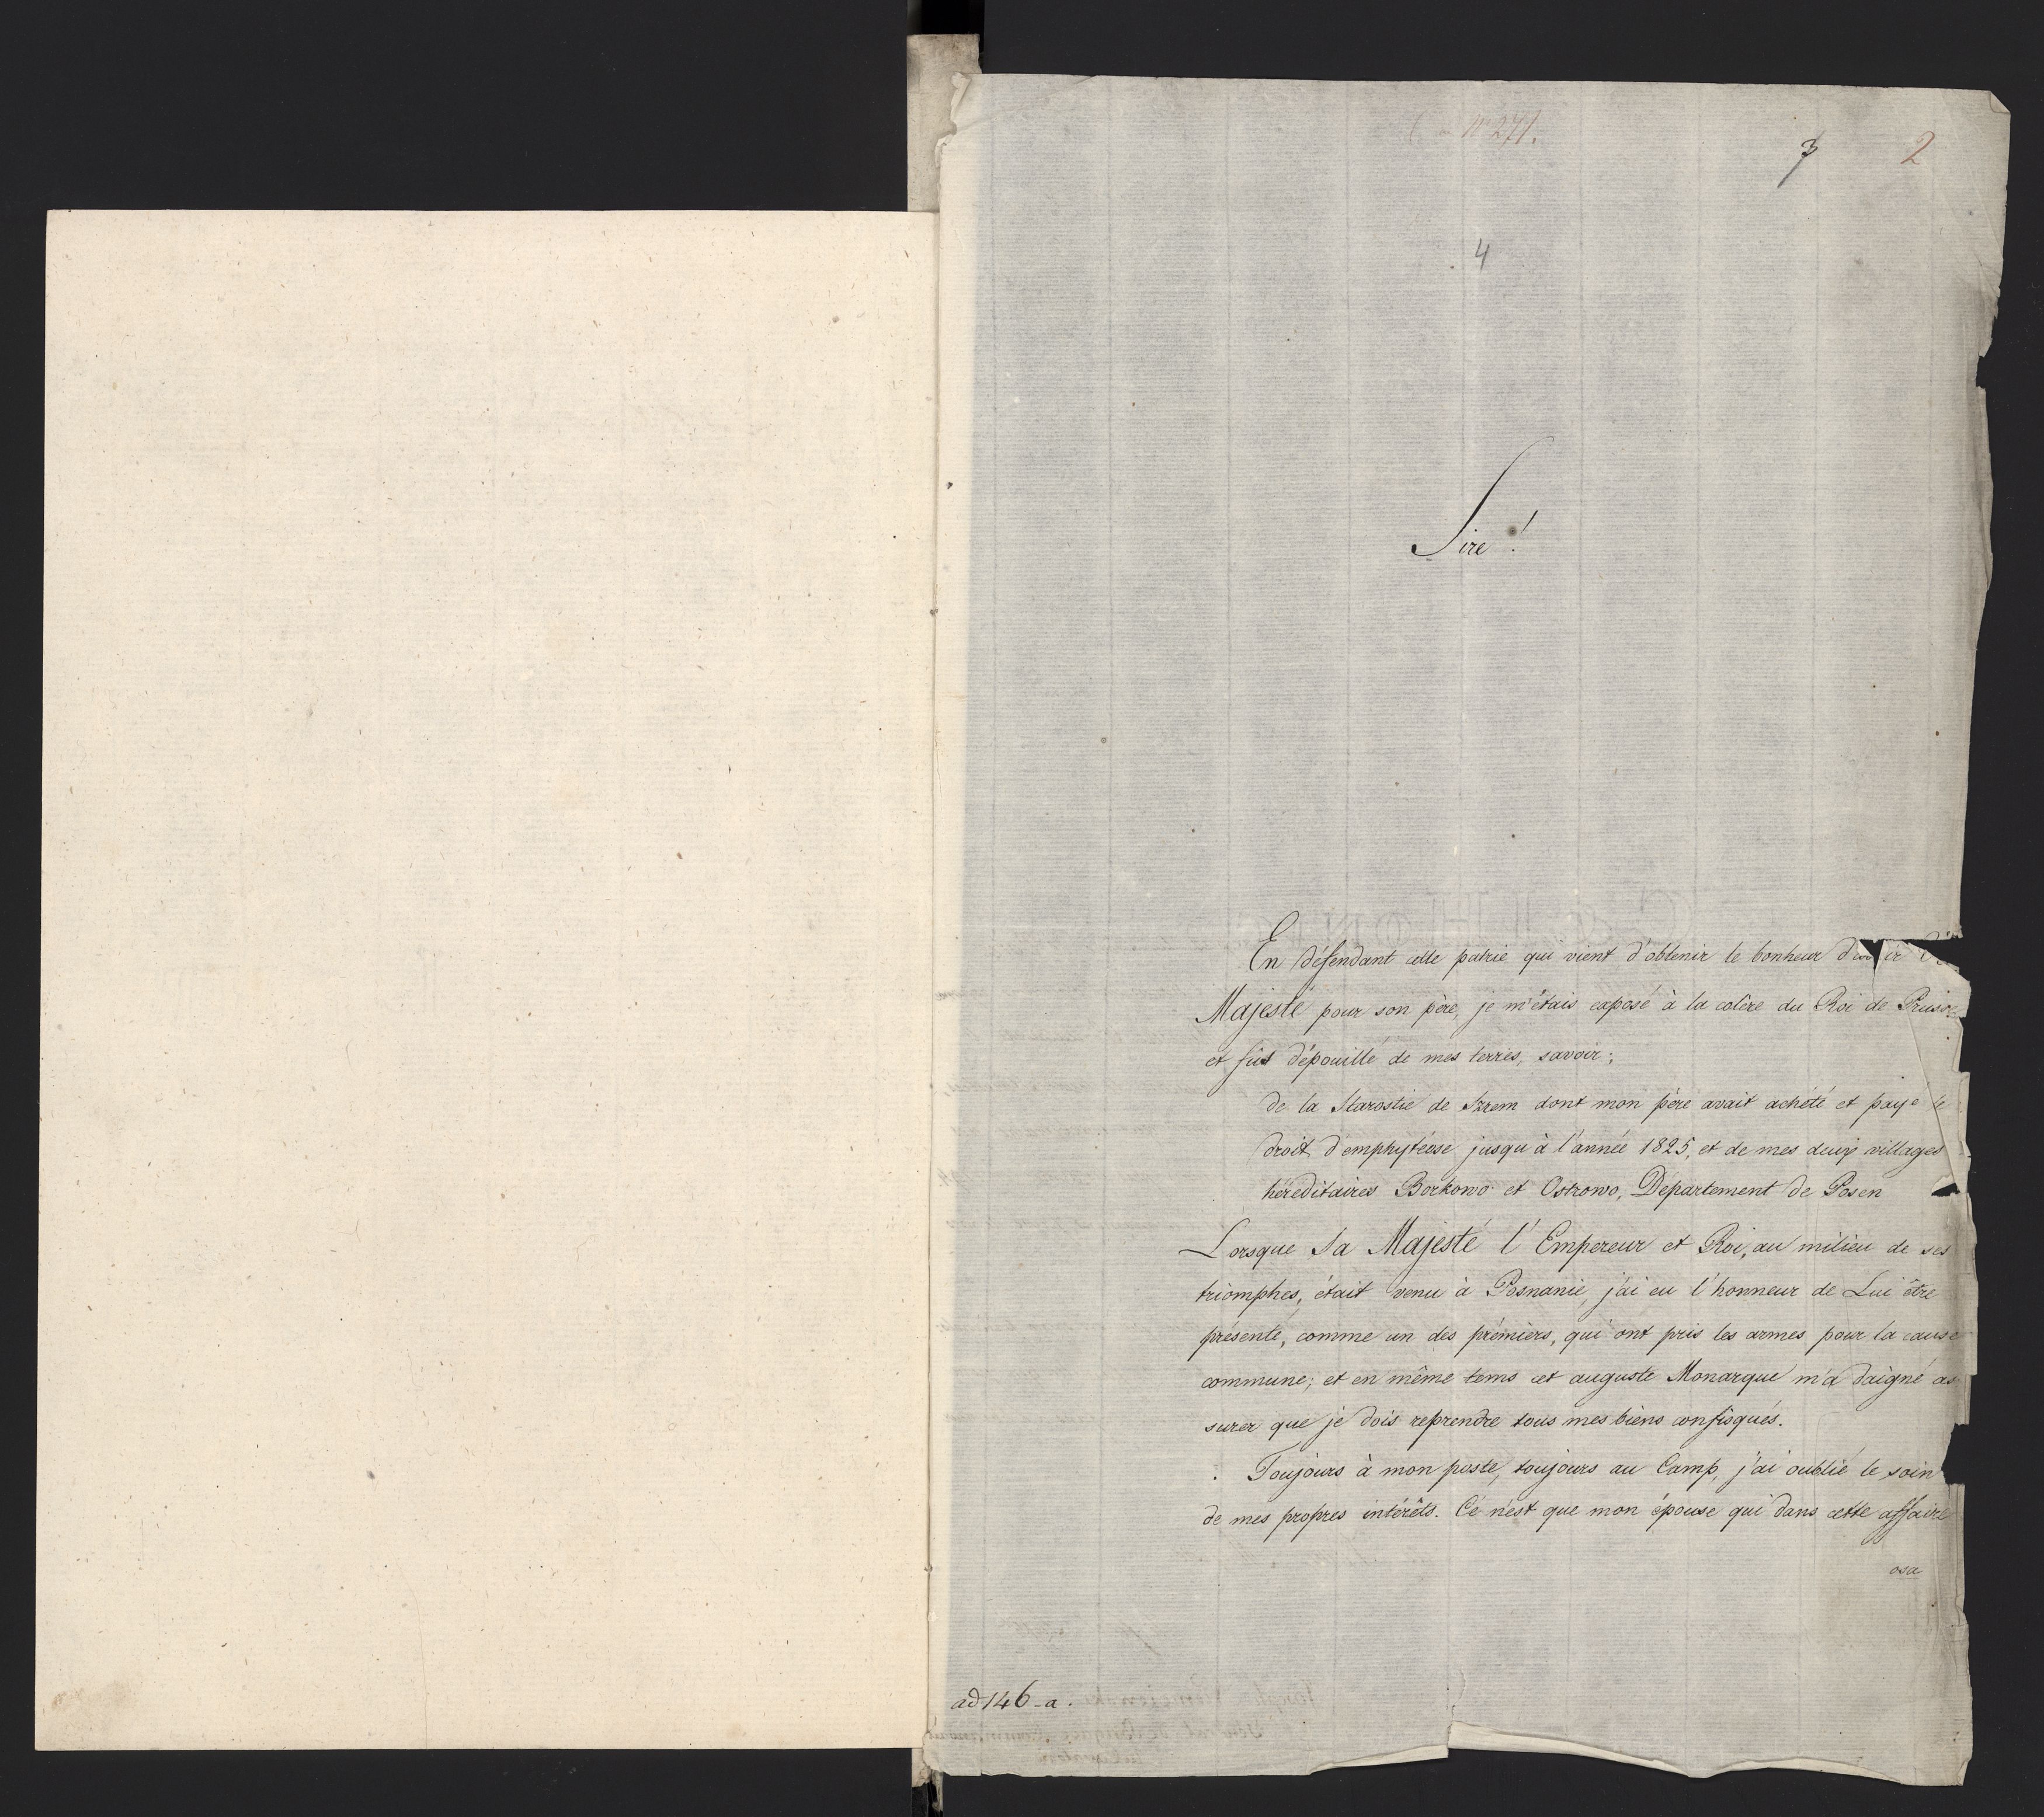 N° 271.
3 2
4
Sire !
En défendant cette patrie qui vient d'obtenir le bonheur
Majesté pour son père, je m'étais exposé à la colère du Roi de Prusse
et fus dépouillé de mes terres, savoir;
de la Starostie de Szrem dont mon père avait achété et payé le
droit d'emphytéose jusqu'à l'année 1825, et de mes deux villages
héreditaires Borkowo et Ostrowo, Département de Posen
Lorsque Sa Majesté l'Empereur et Roi, au milieu de ses
triomphes, était venu à Posnanie, j'ai eu l'honneur de Lui être
présenté, comme un des prémiers, qui ont pris les armes pour la cause
commune; et en même tems cet auguste Monarque m'a daigné as
surer que je dois reprendre tous mes biens confisqués.
Toujours à mon poste, toujours au Camp, j'ai oublié le soin
de mes propres intérêts. Ce n'est que mon épouse qui dans cette affaire
osa
ad 146-a.